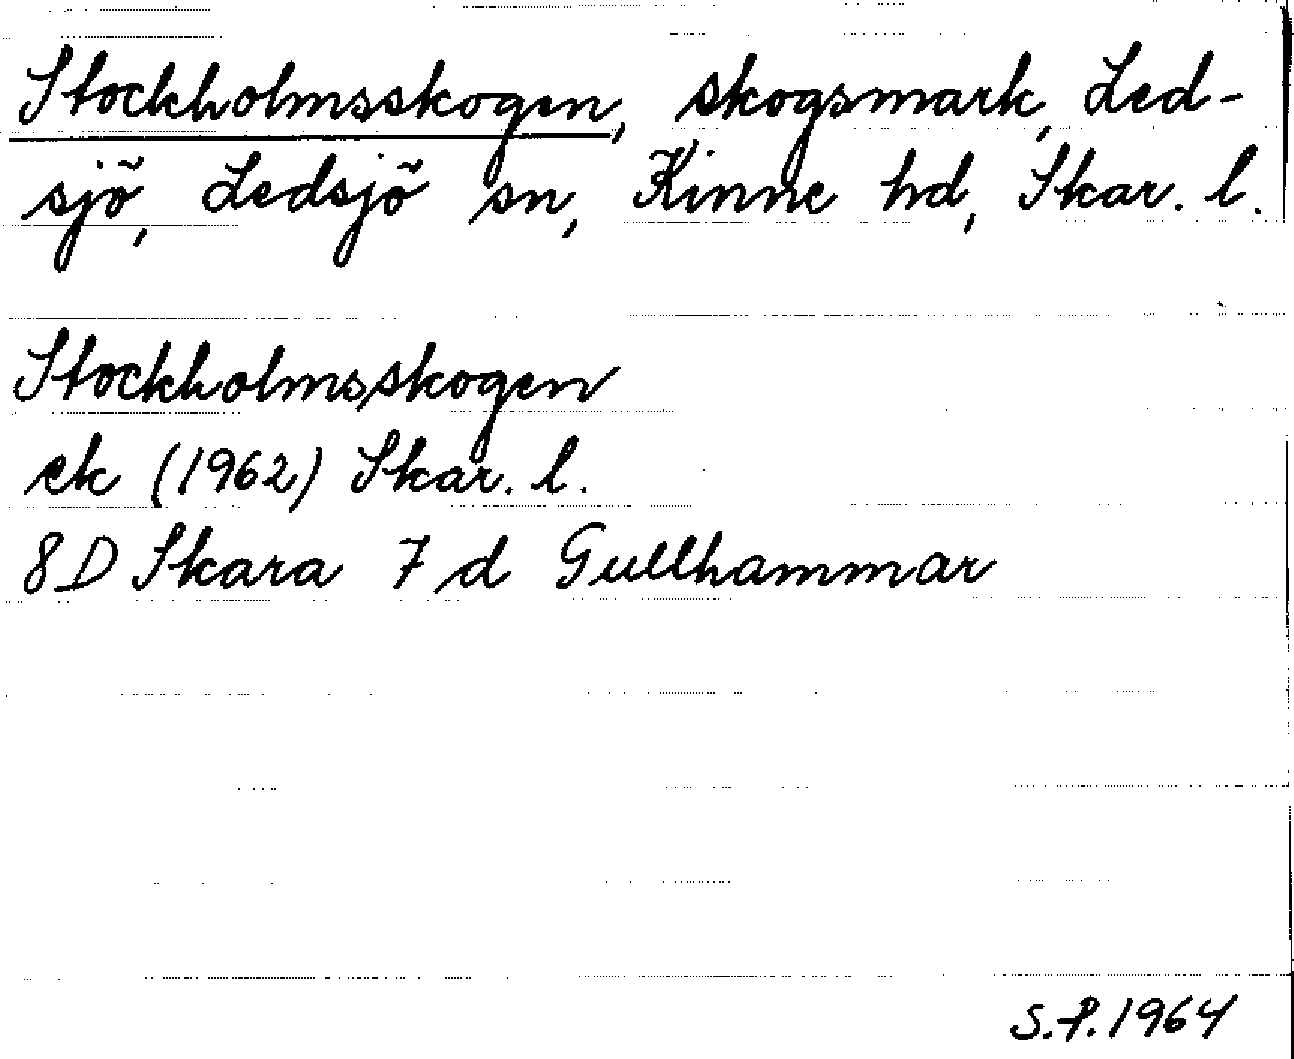 Stockholmsskogen, skogsmark, Led-
sjö, Ledsjö sn, Kinne hd, Skar. l.
Stockholmsskogen
ek (1962) Skar. l.
8D Skara 7 d Gullhammar
S.P. 1964